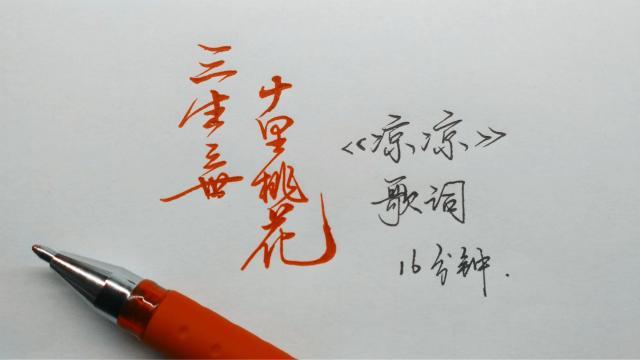 三生三世
十里桃花
《凉凉》
歌词
16分钟.